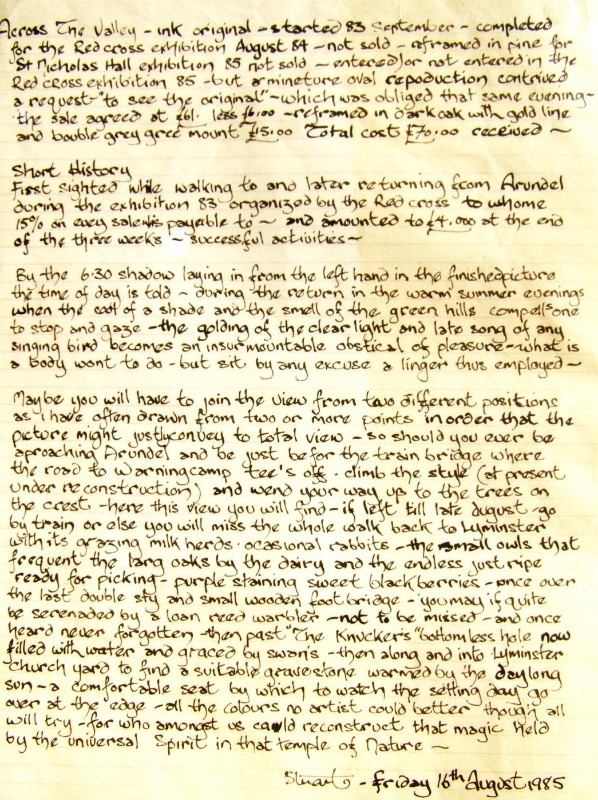 Across The Valley - ink original - started 83 September - completed
for the Redcross exhibition August 84 - not sold - reframed in pine for
St Nicholas Hall exhibition 85 not sold - entered/or not entered in the
Red cross exhibition 85 - but a mineture oval repoduction contrived
a request "to see the original" - which was obliged that same evening -
the sale agreed at £61. less £6.00 - reframed in dark oak with gold line
and bouble grey gree mount £15.00 Total cost £70.00 received ~
Short History
First sighted while walking to and later returning from Arundel
during the exhibition 83 organized by the Red cross to whome
15% on evey sale is payable to ~ and amounted to £4.000 at the end
of the three weeks ~ successful activities ~
By the 6.30 shadow laying in from the left hand in the finished picture
the time of day is told - during the return in the warm summer evenings
when the cool of a shade and the smell of the green hills compells one
to stop and gaze - the golding of the clear light and late song of any
singing bird becomes an insurmountable obstical of pleasure - what is
a body wont to do - but sit by any excuse a linger thus employed ~
Maybe you will have to join the view from two different positions
as i have often drawn from two or more points in order that the
picture might justly convey to total view - so should you ever be
aproaching Arundel and be just befor the train bridge where
the road to Warningcamp tee's off. climb the style (at present
under reconstruction) and wend your way up to the trees on
the crest - here this view you will find - if left till late august - go
by train or else you will miss the whole walk back to Lyminster
with its grazing milk herds. ocasional rabbits - the small owls that
frequent the larg oaks by the dairy and the endless just ripe
ready for picking - purple staining sweet blackberries - once over
the last double sty and small wooden foot bridge - you may if quite
be serenaded by a loan reed warbler - not to be missed - and once
heard never forgotten - then past "The Knuckers" bottomless hole now
filled with water and graced by swan's - then along and into Lyminster
church yard to find a suitable gravestone warmed by the day long
sun - a comfortable seat by which to watch the setting day go
over at the edge - all the colours no artist could better though all
will try - for who amongst us could reconstruct that magic held
by the universal Spirit in that temple of Nature ~
Stuart - friday 16th August 1985